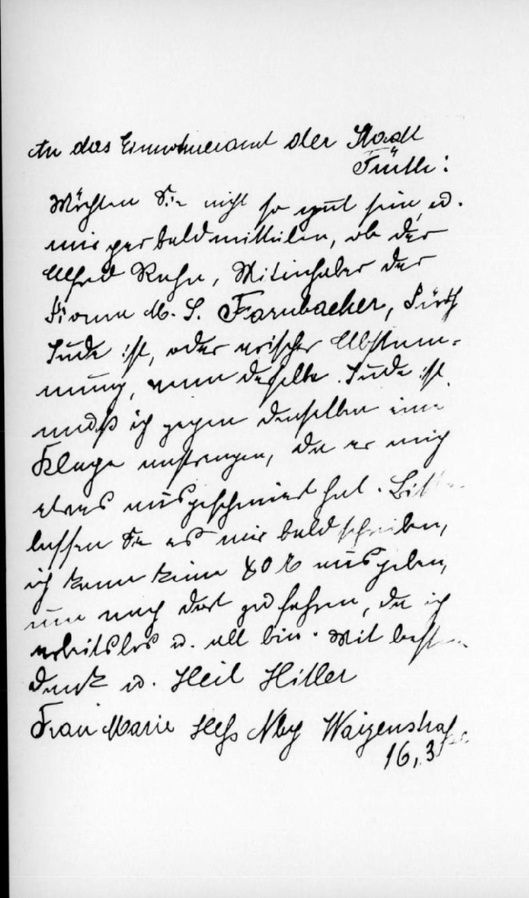 An das Einwohneramt der Stadt
Fürth!
Möchten Sie nicht so gut sein u.
mir per bald mitteilen, ob der
Alfred Kuhn, Mitinhaber der
Firma M. S. Farnbacher, Fürth
Jude ist, oder arischer Abstam-
mung, wenn derselbe Jude ist
muß ich gegen denselben eine
Klage anstrengen, da er mich
etwas ausgeschmiert hat. Bitte
lassen Sie es mir bald schreiben,
ich kann keine 40 ausgeben,
um nach dort zu fahren, da ich
arbeitslos u. alt bin. Mit best
Dank u. Heil Hitler
Frau Marie Heß Nbg Waizenstraße
16,3